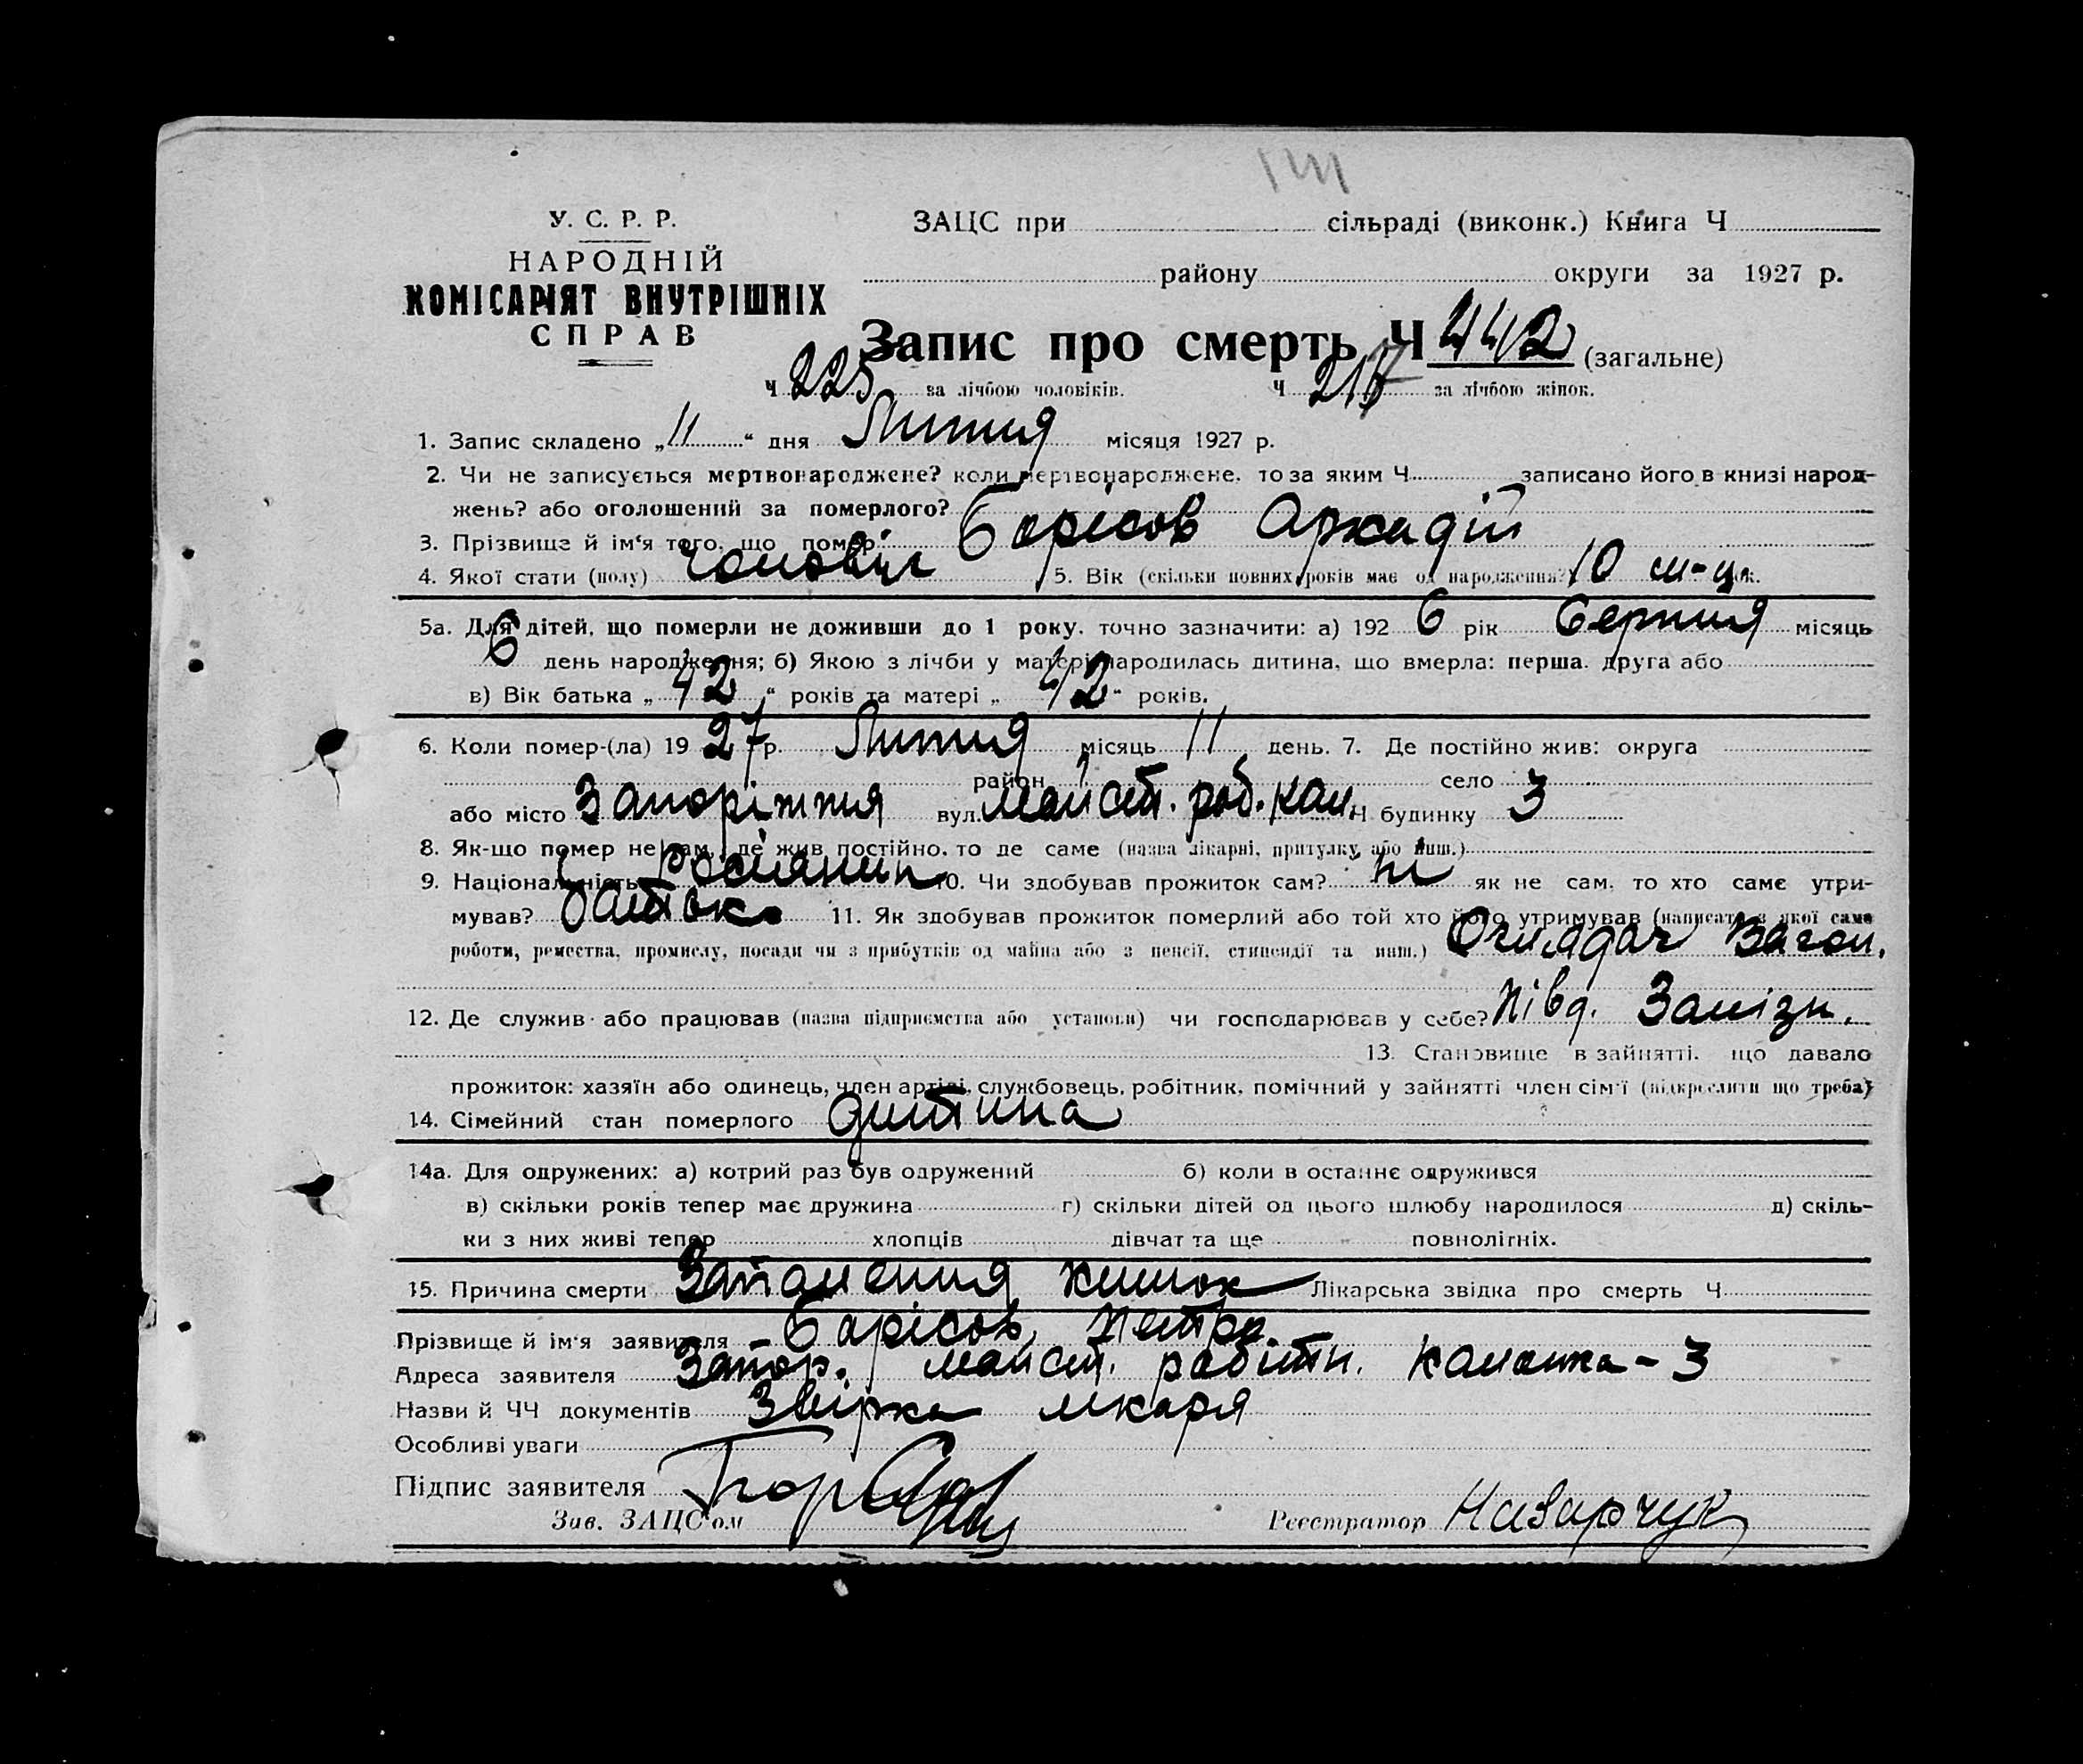 У. С. Р. Р.
НАРОДНІЙ
КОМІСАРІЯТ ВНУТРІШНІХ
СПРАВ
ЗАЦС при сільраді (виконк.) Книга Ч
району округи за 1927 р.
Запис про смерть Ч 442 (загальне)
Ч 225 за лічбою чоловіків. Ч 217 за лічбою жінок.
1. Запис складено „11“ дня Липня місяця 1927 р.
2. Чи не записується мертвонароджене? коли мертвонароджене, то за яким Ч записано його в книзі народ-
жень? або оголошений за померлого?
3. Прізвище й ім‘я того, що помер Борісов Аркадій
4. Якої стати (полу) Чоловік 5. Вік (скільки повних років має од народження?) 10 м-ц.
5а. Для дітей, що померли не доживши до 1 року, точно зазначити: а) 192 6 рік Серпня місяць
6 день народження; б) Якою з лічби у матері народилась дитина, що вмерла: перша, друга або
в) Вік батька „42“ років та матері „42“ років.
6. Коли помер-(ла) 19 27 р. Липня місяць 11 день. 7. Де постійно жив: округа
район село
або місто Запоріжжя вул. Майст. роб. кам. Ч будинку 3
8. Як-що помер не там, де жив постійно, то де саме (назва лікарні, притулку, або инш.)
9. Національність Росіянин 10. Чи здобував прожиток сам? ні як не сам, то хто саме утри-
мував? батько 11. Як здобував прожиток померлий або той хто його утримував (написати з якої саме
роботи, ремества, промислу, посади чи з прибутків од майна або з пенсії, стипендії та инш.) Оглядач Вагон.
12. Де служив або працював (назва підприємства або установи) чи господарював у себе? Півд. Залізн.
13. Становище в зайнятті, що давало
прожиток: хазяїн або одинець, член артілі, службовець, робітник, помічний у зайнятті член сім‘ї (підкреслити що треба)
14. Сімейний стан померлого дитина
14а. Для одружених: а) котрий раз був одружений б) коли в останнє одружився
в) скільки років тепер має дружина г) скільки дітей од цього шлюбу народилося д) скіль-
ки з них живі тепер хлопців дівчат та ще повнолітніх.
15. Причина смерти Запалення кишок Лікарська звідка про смерть Ч
Прізвище й ім‘я заявителя Борісов Петро
Адреса заявителя Запор. майст. робітн. камянка-3
Назви й ЧЧ документів Звірка лікаря
Особливі уваги
Підпис заявителя
Зав. ЗАЦС‘ом Реєстратор Назарчук